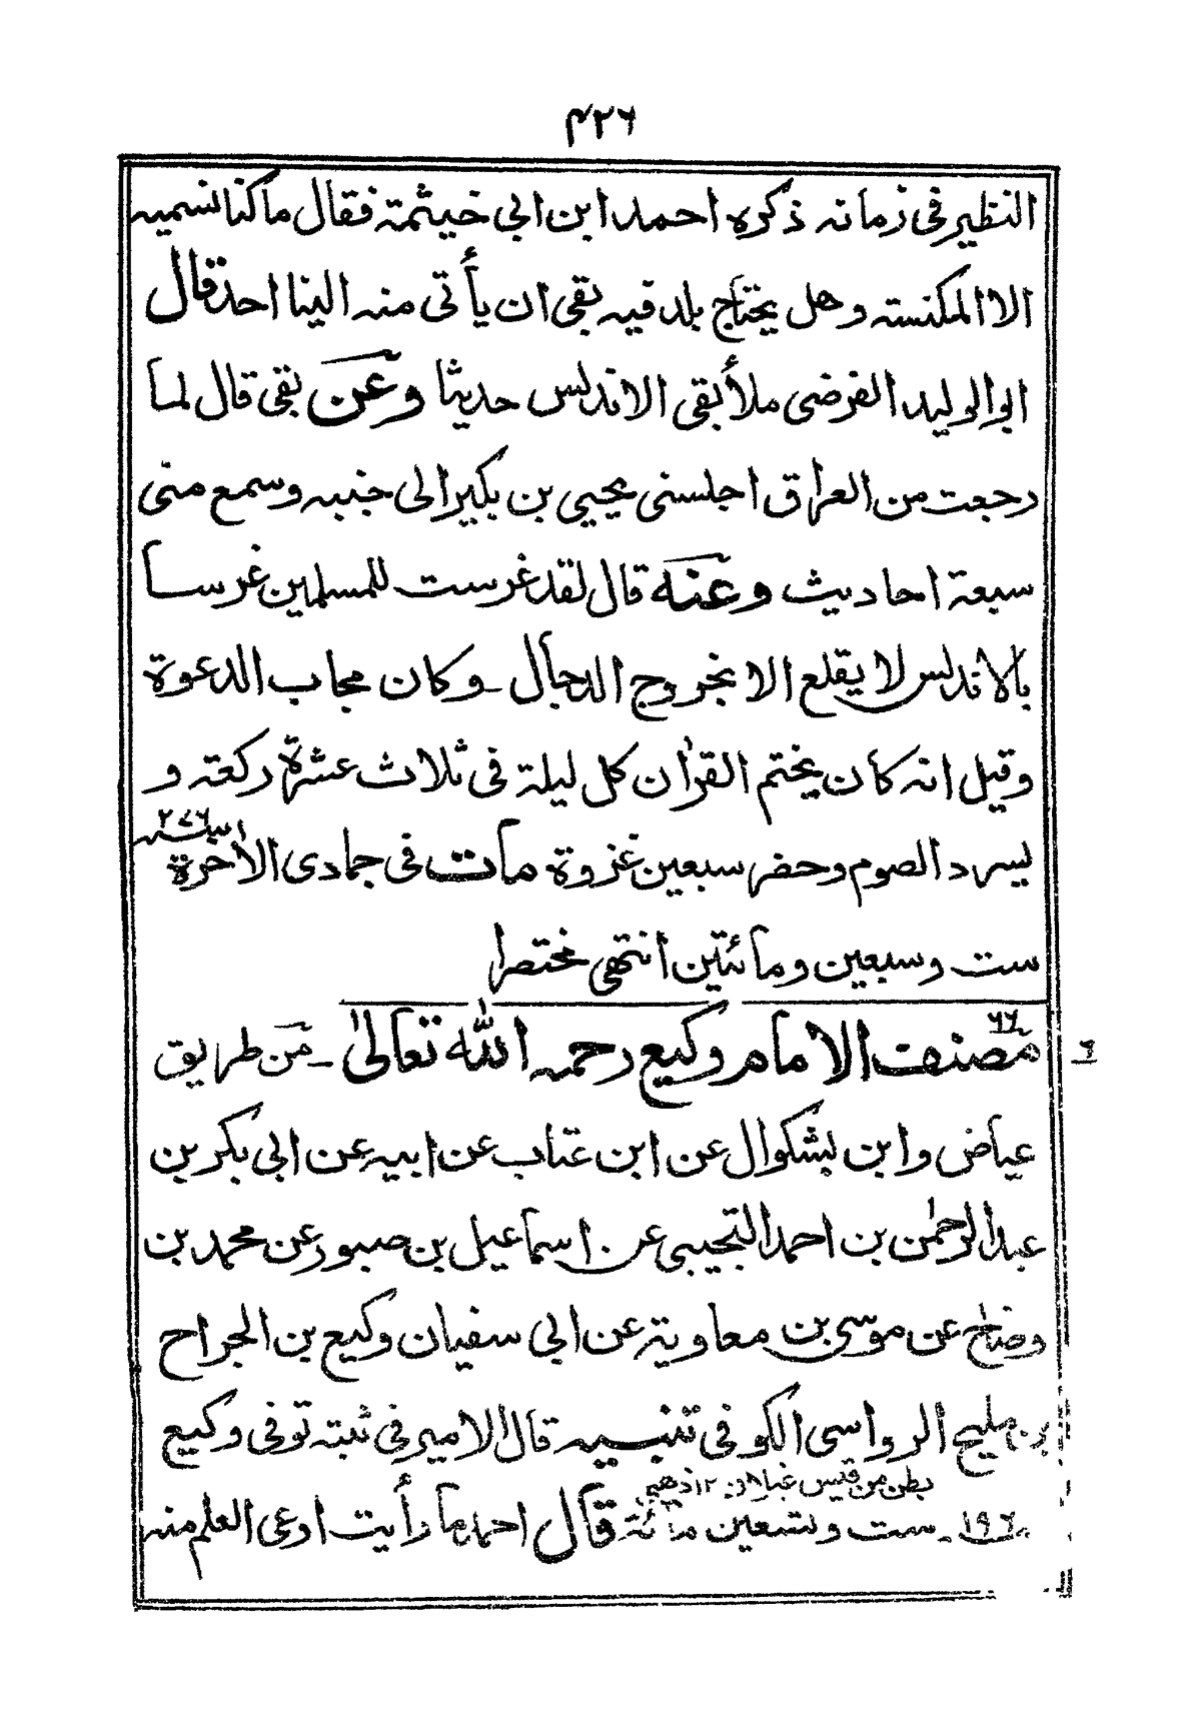 ٤٢٦
النظير فى زمانه ذكره احمد ابن ابي خيثمة فقال ما كنا نسميه
الا المكنسته وهل يحتاج بلد فيه بقى ان يأتى منه الينا احد قال
ابو الوليد الفرضى ملأ بقى الاندلس حديثا وعن بقى قال لما
رجعت من العراق اجلسنى يحيى بن بكير الى جنبه وسمع منى
سبعة احاديث وعنه قال لقد غرست للمسلمين غرسا
بالاندلس لا يقلع الا بخروج الدجال - وكان مجاب الدعوة
وقيل انه كان يختم القرأن كل ليلة فى ثلاث عشرة ركعته و
يسرد الصوم وحضر سبعين غزوة مات فى جمادى الأخرة سنة ٢٧٦
ست وسبعين ومائتين انتهى مختصرا
٦٦ مصنف الامام وكيع رحمه الله تعالىٰ - من طريق
٦
عياض وابن بشكوال عن ابن عتاب عن ابيه عن ابي بكر بن
عبد الرحمٰن بن احمد التجيبى عن اسماعيل بن صبور عن محمد بن
وضاح عن موسى بن معاوية عن ابي سفيان وكيع بن الجراح
بن مليح الرواسى الكوفى تنبيه قال الامير فى ثبته توفى وكيع
بطن من قيس غيلان ١٢ ذهبى
١٩٦ - ست وتسعين مائة قال احمد ما رأيت اوعى العلم منه